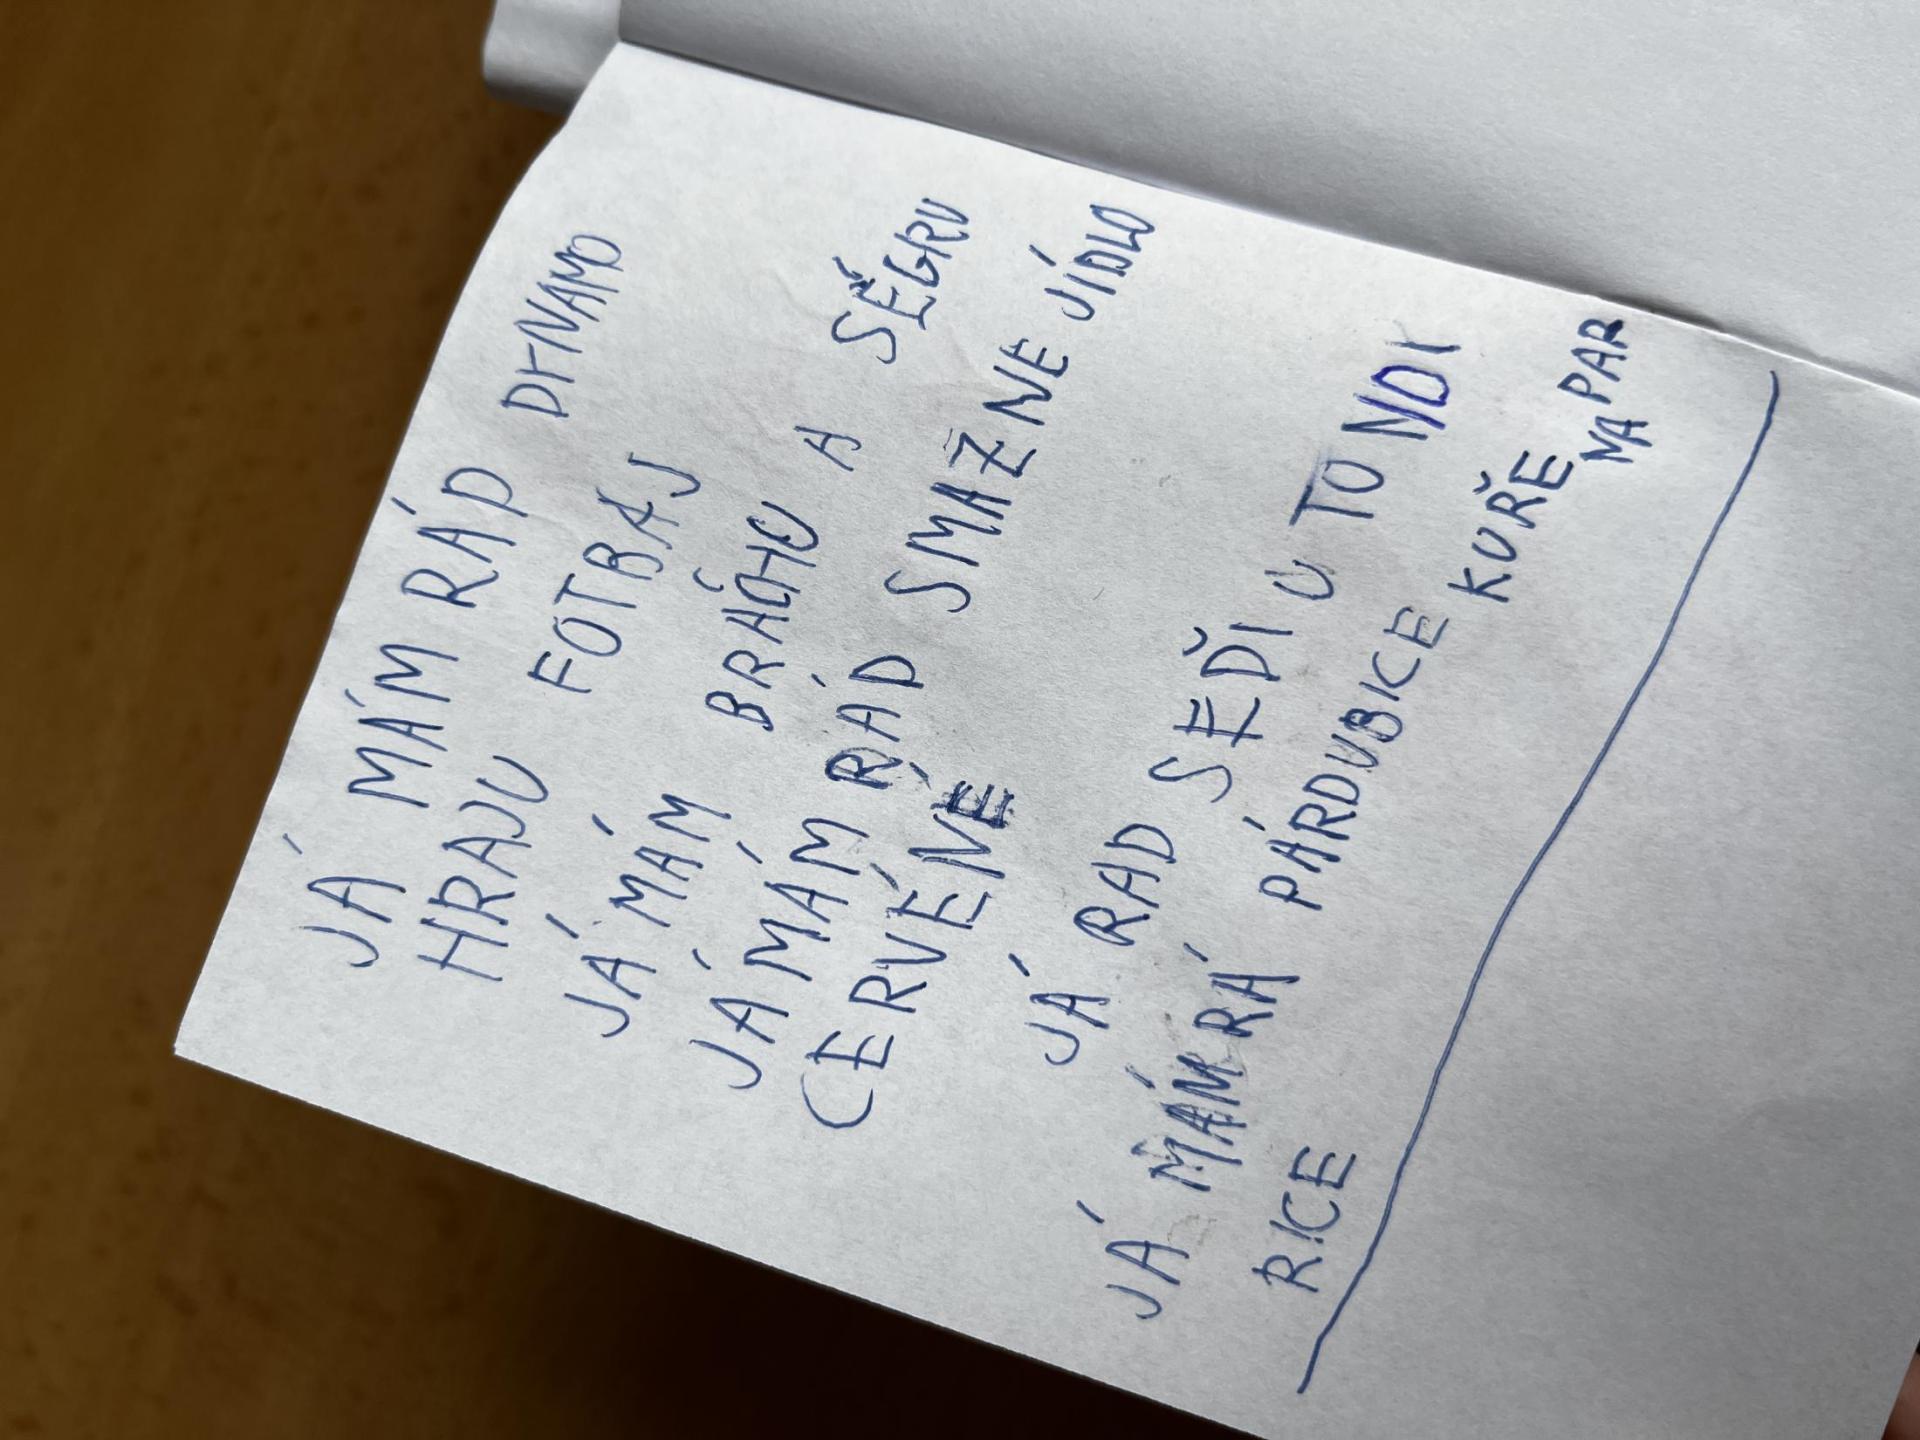 JÁ MÁM RÁD DYNAMO
HRAJU FOTBAJ
JÁ MÁM BRÁCHU A SÉGRU
JÁ MÁM RÁD SMAZNE JÍDLO
CERVÉNÉ
JÁ RAD SEĎI U TO NDI
JÁ MÁM RÁ PÁRDUBICE KUŘE NA PAR
RICE